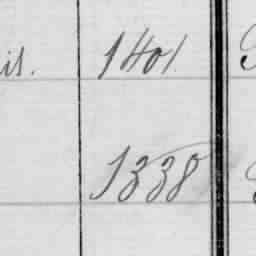 is. 1401.
1338